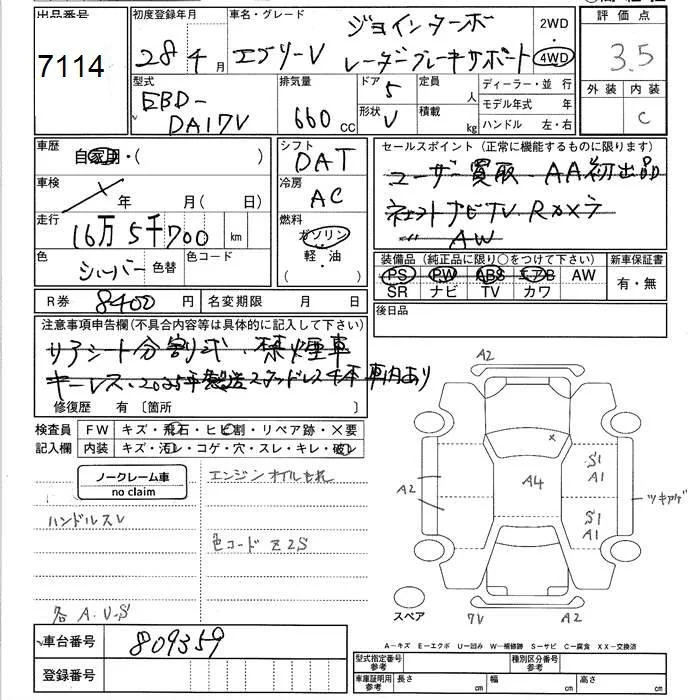 出品番号 初度登録年月 車名・グレード 評価点
7114 28年4月 エブリーV ジョインターボ 2WD
レーダーブレーキサポート 4WD 3.5
型式 排気量 ドア 定員 ディーラー・並行 外装 内装
EBD- 5 人 モデル年式 年 C
DA17V 660cc 形状 V 積載 kg ハンドル 左・右
車歴 自家用・( ) シフト DAT セールスポイント(正常に機能するものに限ります)
車検 年 月(日) 冷房 AC ユーザー買取 AA初出品
走行 16万5千700km 燃料 ガソリン ナビTV Rカメラ
軽油 〃 AW
色 シルバー 色替 色コード ( ・ ) 装備品(純正品に限り○をつけて下さい) 新車保証書
PS PW ABS エアB AW 有・無
SR ナビ TV カワ
R券 8400円 名変期限 月 日 後日品
注意事項申告欄(不具合内容等は具体的に記入して下さい)
リアシート分割式・禁煙車
キーレス・2025年製造スタッドレス4本車内あり
修復歴 有〔箇所 〕
検査員 FW キズ・飛石・ヒビ割・リペア跡・×要
記入欄 内装 キズ・汚レ・コゲ・穴・スレ・キレ・破レ
ノークレーム車 エンジンオイルもれ
no claim
ハンドルスレ
色コード Z2S
各A.U.S
A2
A2
A4
S1
A1
S1
A1
ツキアゲ
スペア 7V A2
車台番号 809359
A-キズ E-エクボ U-凹み W-補修跡 S-サビ C-腐食 XX-交換済
登録番号
型式指定番号 参考 種別区分番号 参考
車庫証明用 参考 長さ cm 幅 cm 高さ cm